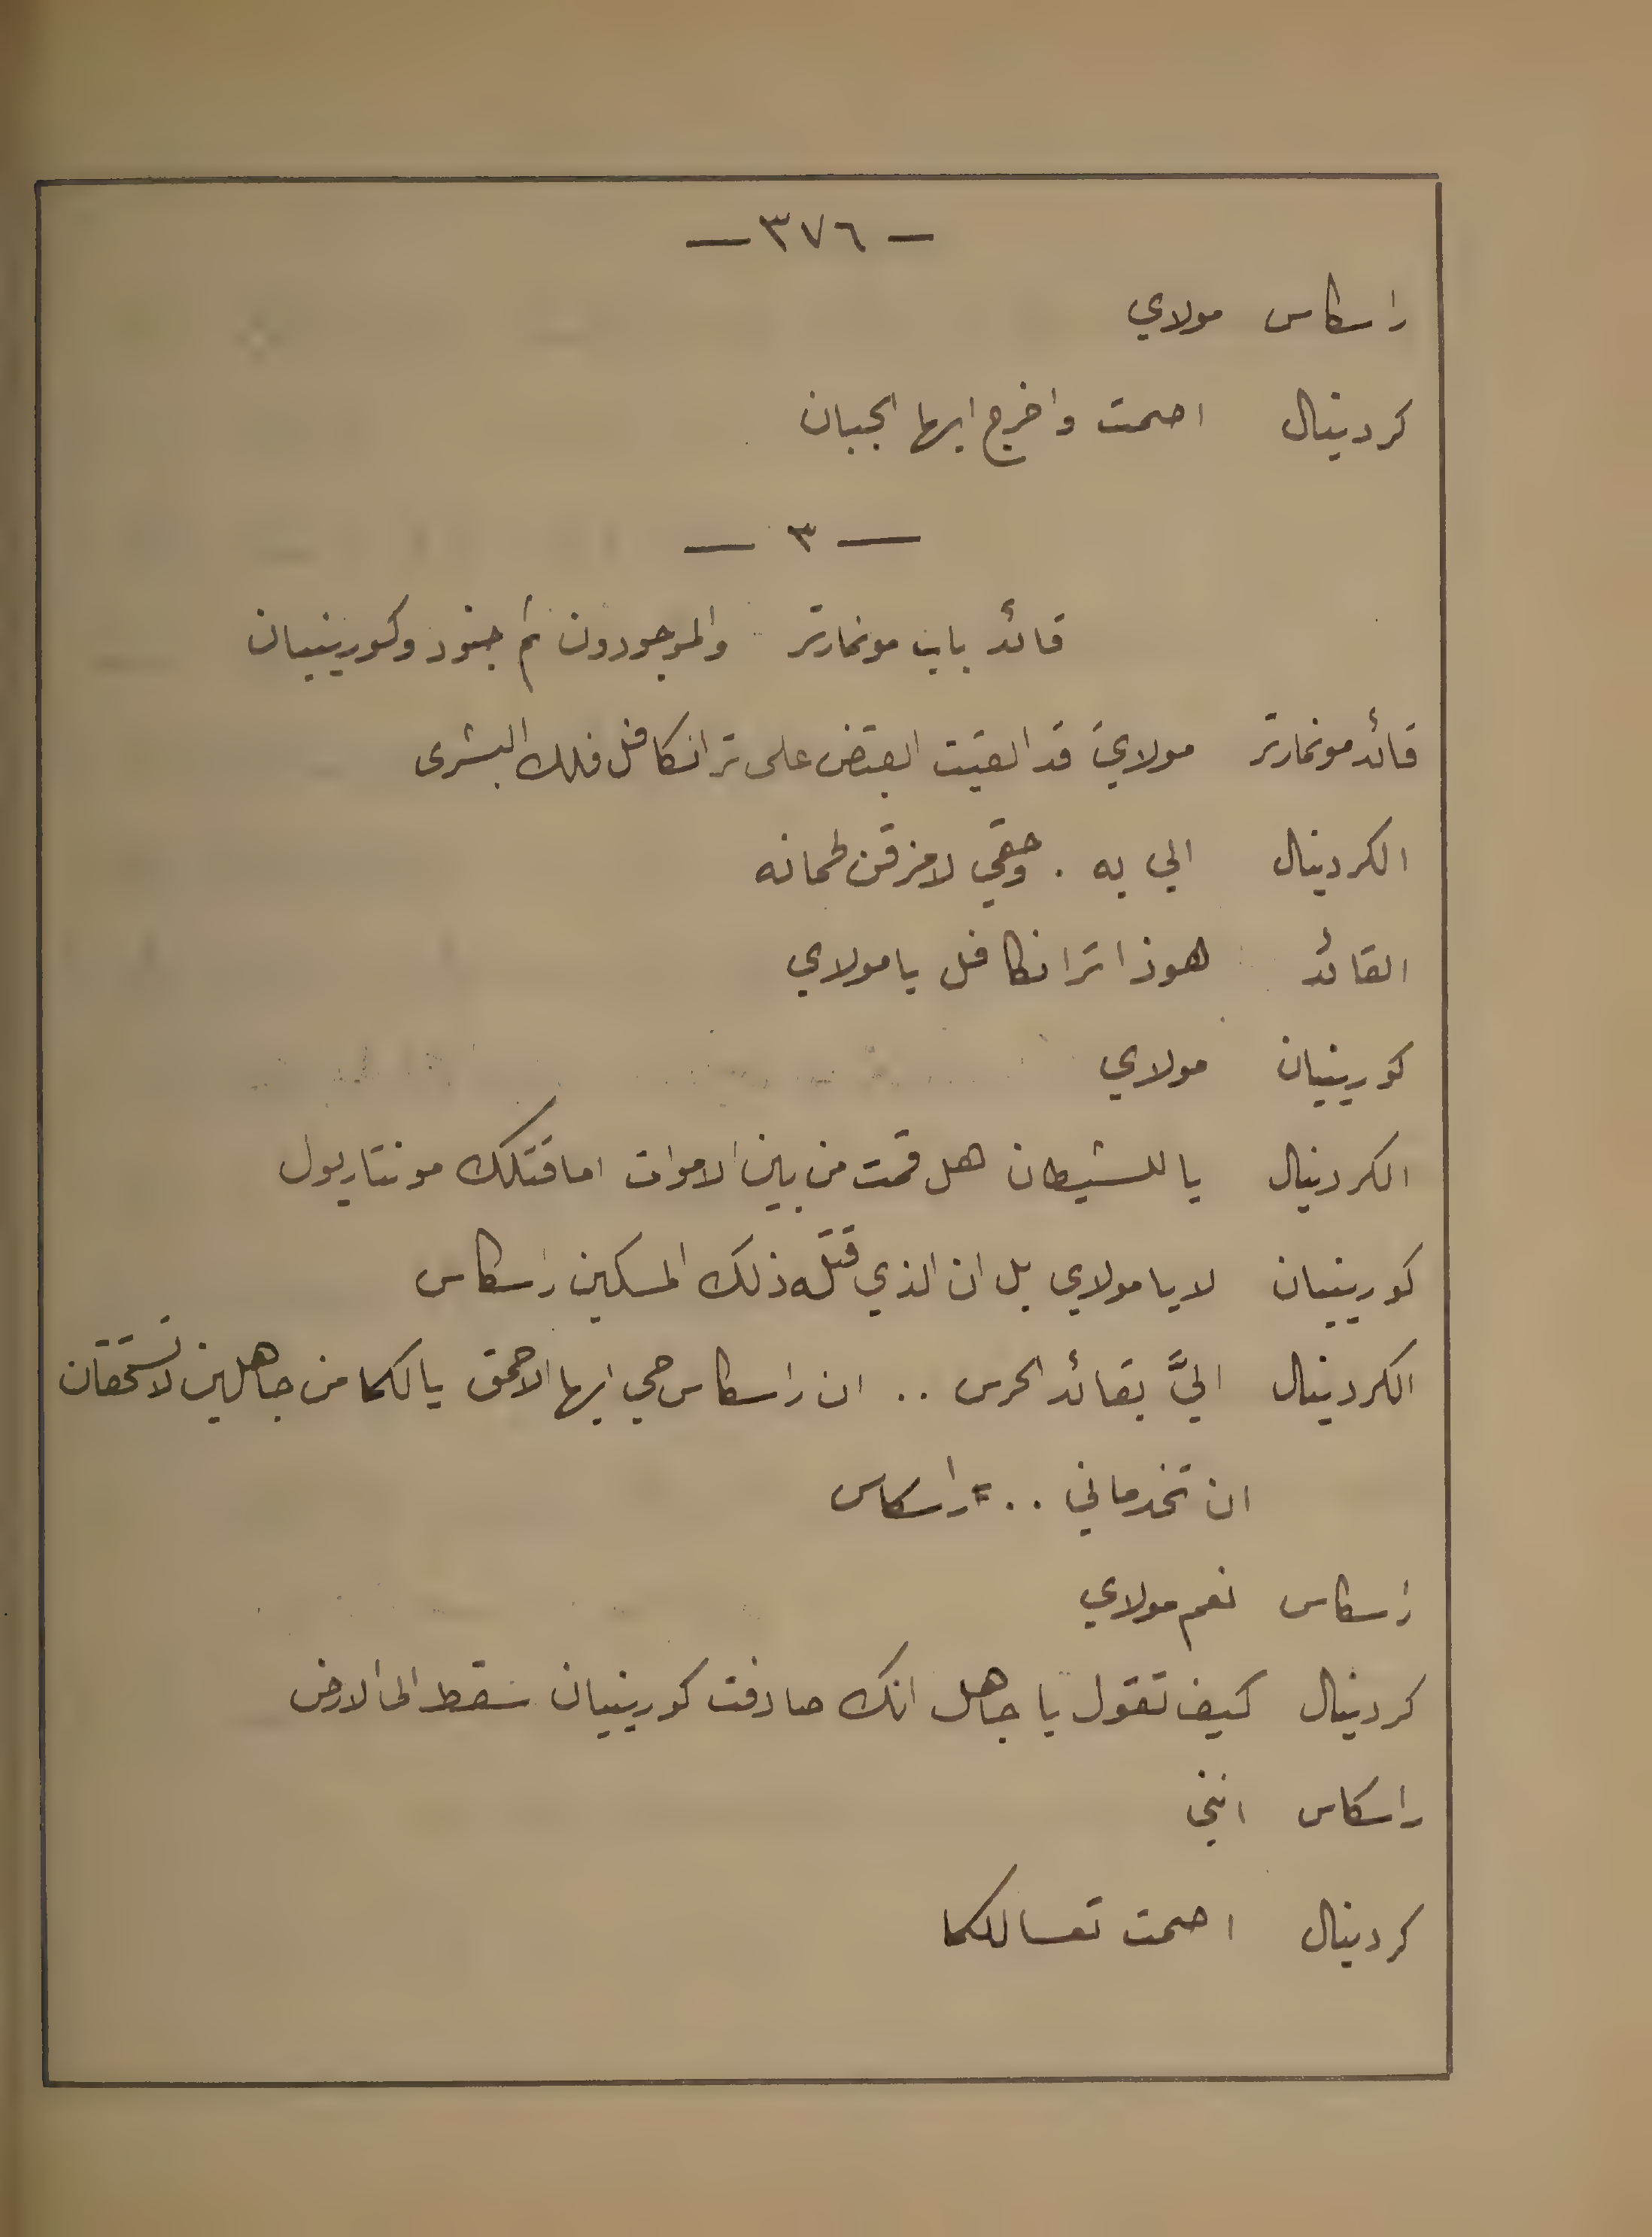 — ٣٧٦ —
راسكاس مولاي
كردينال اصمت واخرج ايها الجبان
— ٣ —
قائد باب مونمارتر والموجودون ثم جنود وكورينيان
قائد مونمارتر مولايَ قد القيت القبض على ترانكافل فلك البشرى
الكردينال الي به . وحقي لامزقن لحمانه
القائد هوذا ترانكافل يا مولاي
كورينيان مولاي
الكردينال يا للشيطان هل قمت من بين الاموات اما قتلك مونتاريول
كورينيان لا يا مولاي بل ان الذي قتله ذلك المسكين راسكاس
الكردينال اليَّ بقائد الحرس .. ان راسكاس حي ايها الاحمق يا لكما من جاهلين لا تستحقان
ان تخدماني .. = راسكاس
راسكاس نعم مولاي
كردينال كيف تقول يا جاهل انك صادفت كورينيان سقط الى الارض
راسكاس انني
كردينال اصمت تعسا لكما